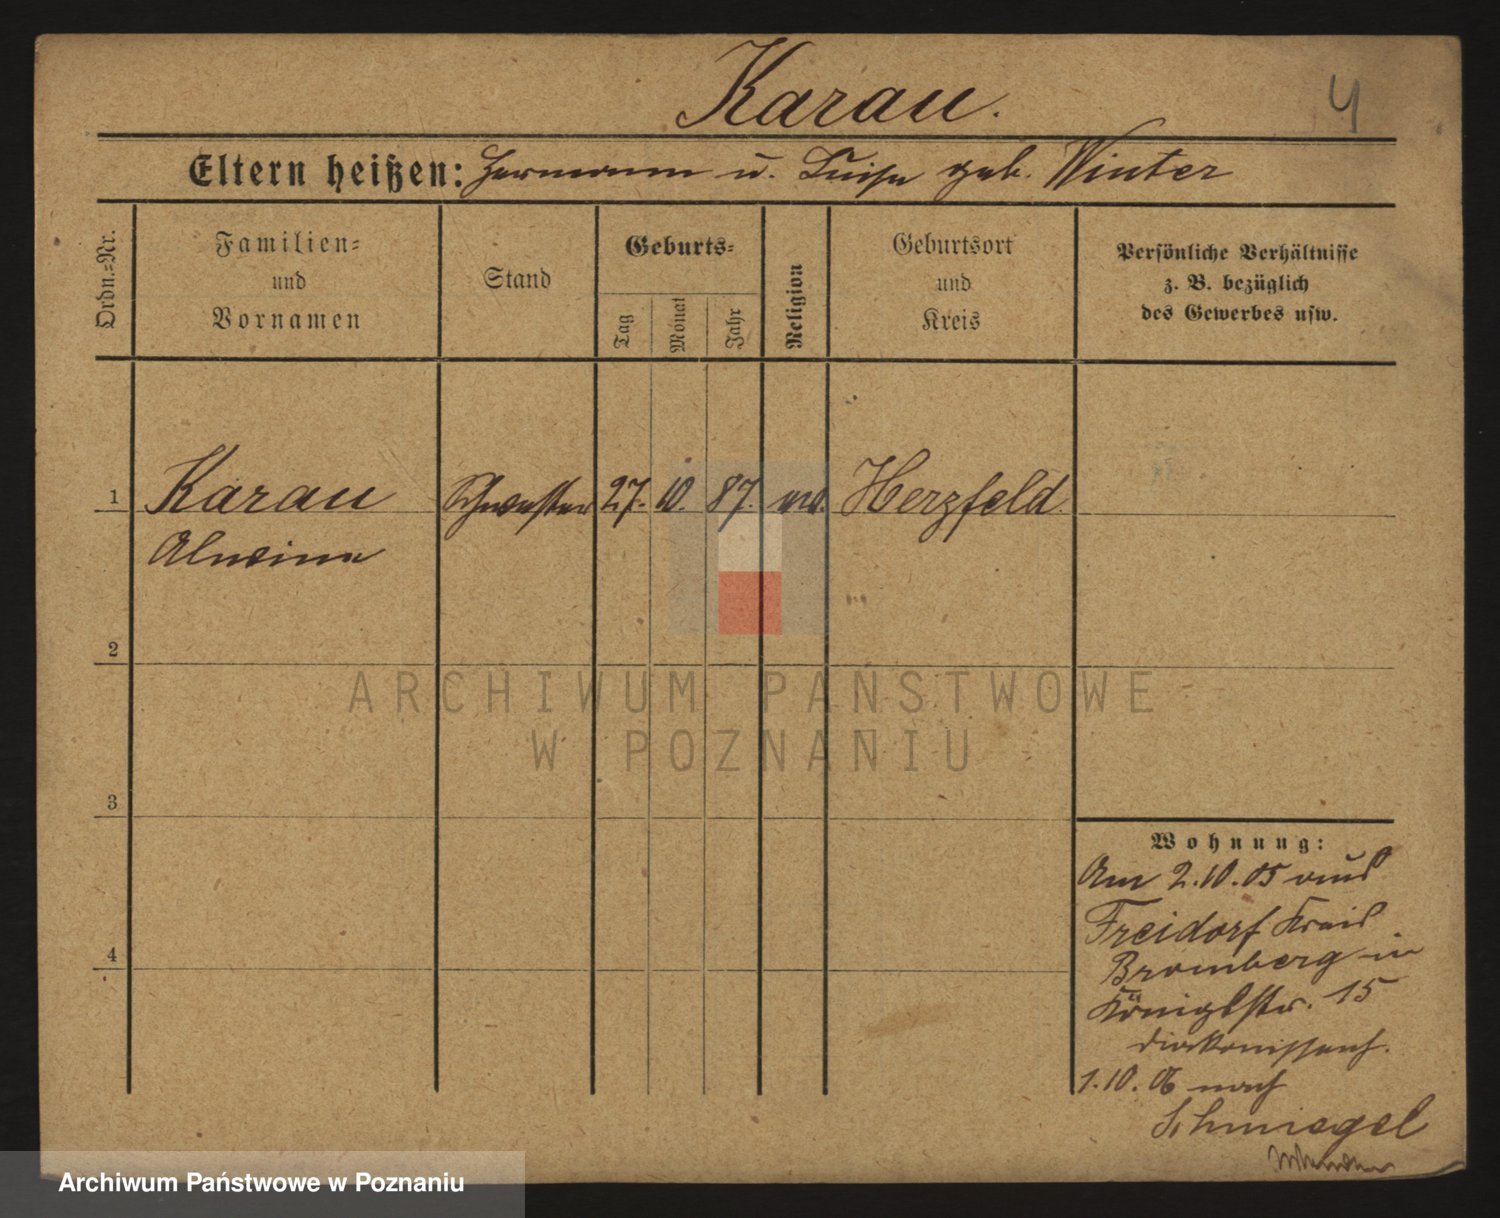 Karau.
4
Eltern heißen: Hermann u. Luise geb. Winter
Ordn.-Nr.
Familien-
und
Vornamen
Stand
Geburts-
Tag
Monat
Jahr
Religion
Geburtsort
und
Kreis
Persönliche Verhältnisse
z. B. bezüglich
des Gewerbes usw.
1
Karau Schwester 27. 10. 87. ev. Herzfeld
Alwine
2
3
4
Wohnung:
Am 2.10.05 aus
Freidorf Kreis
Bromberg in
Königstr. 15
Diakonissenh.
1.10.06 nach
Schmiegel
ARCHIWUM PAŃSTWOWE
W POZNANIU
Archiwum Państwowe w Poznaniu